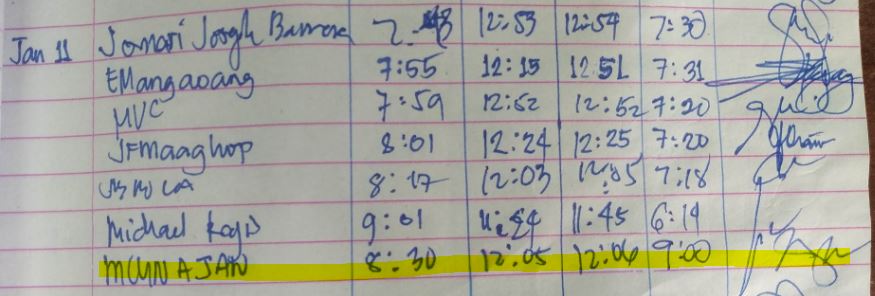 Jan 11 Jomari Joogh 12:53 12:54 7:30
EMangaoang 7:55 12:15 12:51 7:31
MVC 7:59 12:52 12:52 7:20
JFmaaghop 8:01 12:24 12:25 7:20
8:17 12:03 12:05 7:18
Michael 9:01 11:45 6:14
8:30 12:05 12:06 9:00